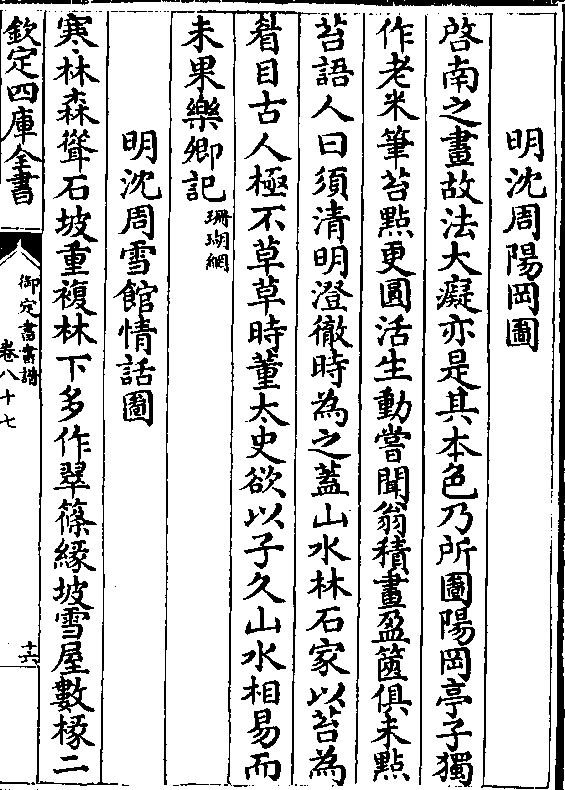 明沈周陽岡圖
啓南之畫故法大癡亦是其本色乃所圖陽岡亭子獨
作老米筆苔點更圓活生動嘗聞翁積畫盈篋俱未點
苔語人曰須清明澄徹時為之蓋山水林石家以苔為
眉目古人極不草草時董太史欲以子久山水相易而
未果樂卿記珊瑚網
明沈周雪館情話圖
寒林森聳石坡重複林下多作翠篠緣坡雪屋數椽二
欽定四庫全書
御定書畫譜
卷八十七
十六